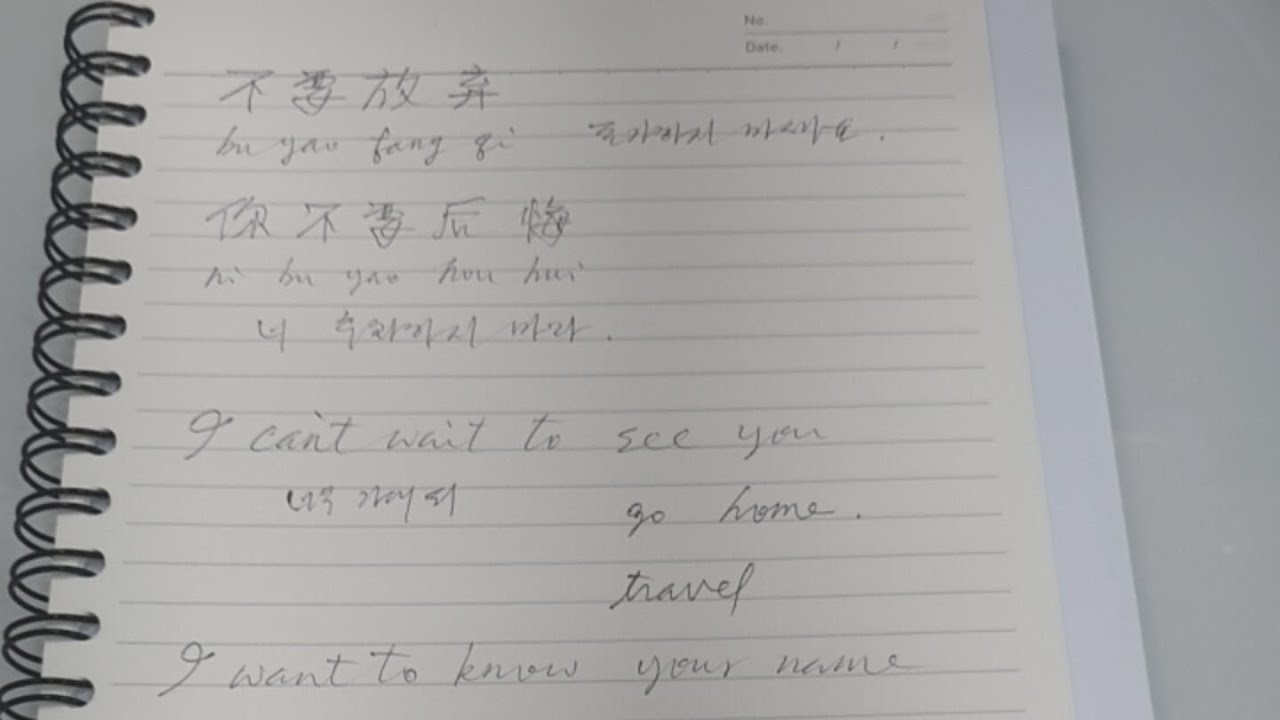 No.
Date. / /
不要放弃
bu yao fang qi 포기하지 마세요.
你不要后悔
ni bu yao hou hui
너 후회하지 마라.
I can't wait to see you
너무 기대 돼 go home.
travel
I want to know your name